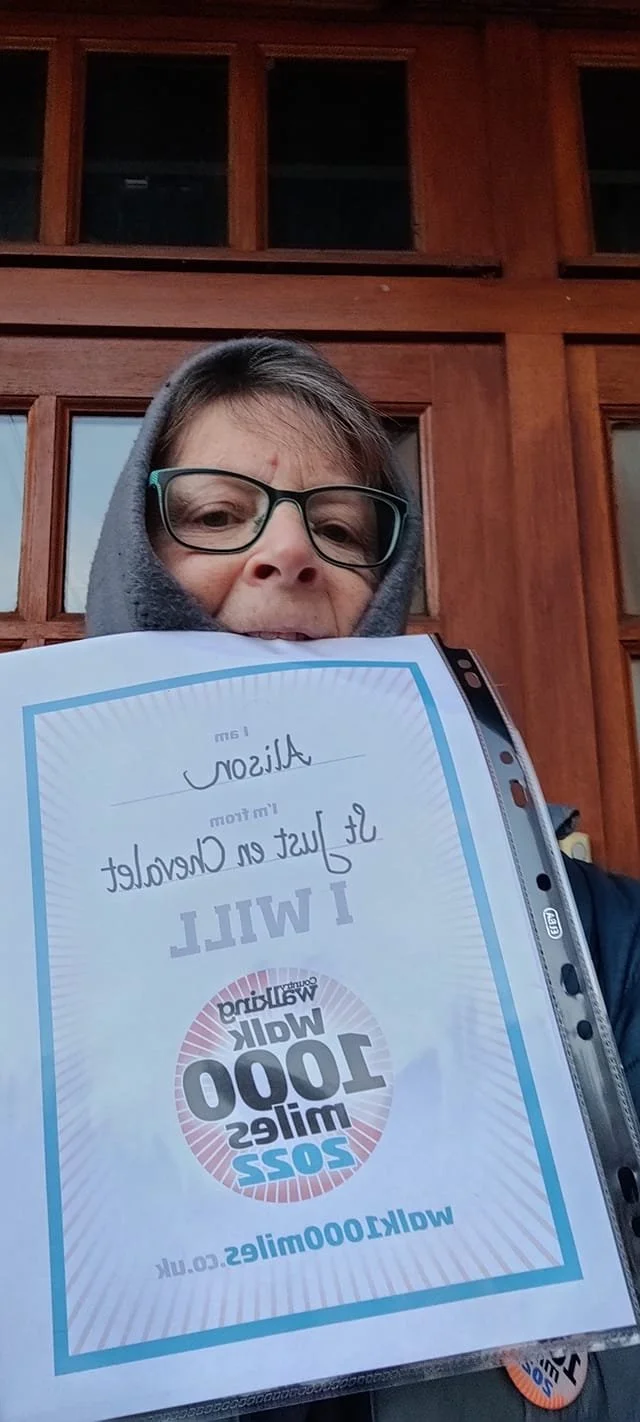 I am
Alison
I'm from
St Just en Chevalet
I WILL
Country
walking
Walk
1000
miles
2022
walk1000miles.co.uk
miles
202